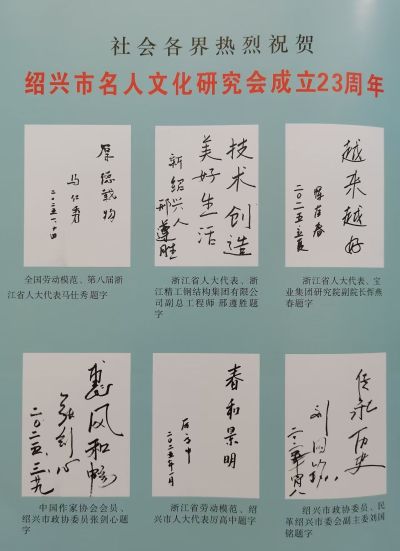 社会各界热烈祝贺
绍兴市名人文化研究会成立23周年
厚德载物
马仕秀
技术创造
美好生活
新绍兴人
邢遵胜
越来越好
二〇二五立夏
全国劳动模范、第八届浙
江省人大代表马仕秀题字
浙江省人大代表、浙
江精工钢结构集团有限公
司副总工程师 邢遵胜题
字
浙江省人大代表、宝
业集团研究院副院长恽燕
春题字
惠风和畅
张剑心
二〇二五、三、九
春和景明
厉高中
二〇二五年一月
传承历史
刘国铭
中国作家协会会员、
绍兴市政协委员张剑心题
字
浙江省劳动模范、绍
兴市人大代表厉高中题字
绍兴市政协委员、民
革绍兴市委会副主委刘国
铭题字